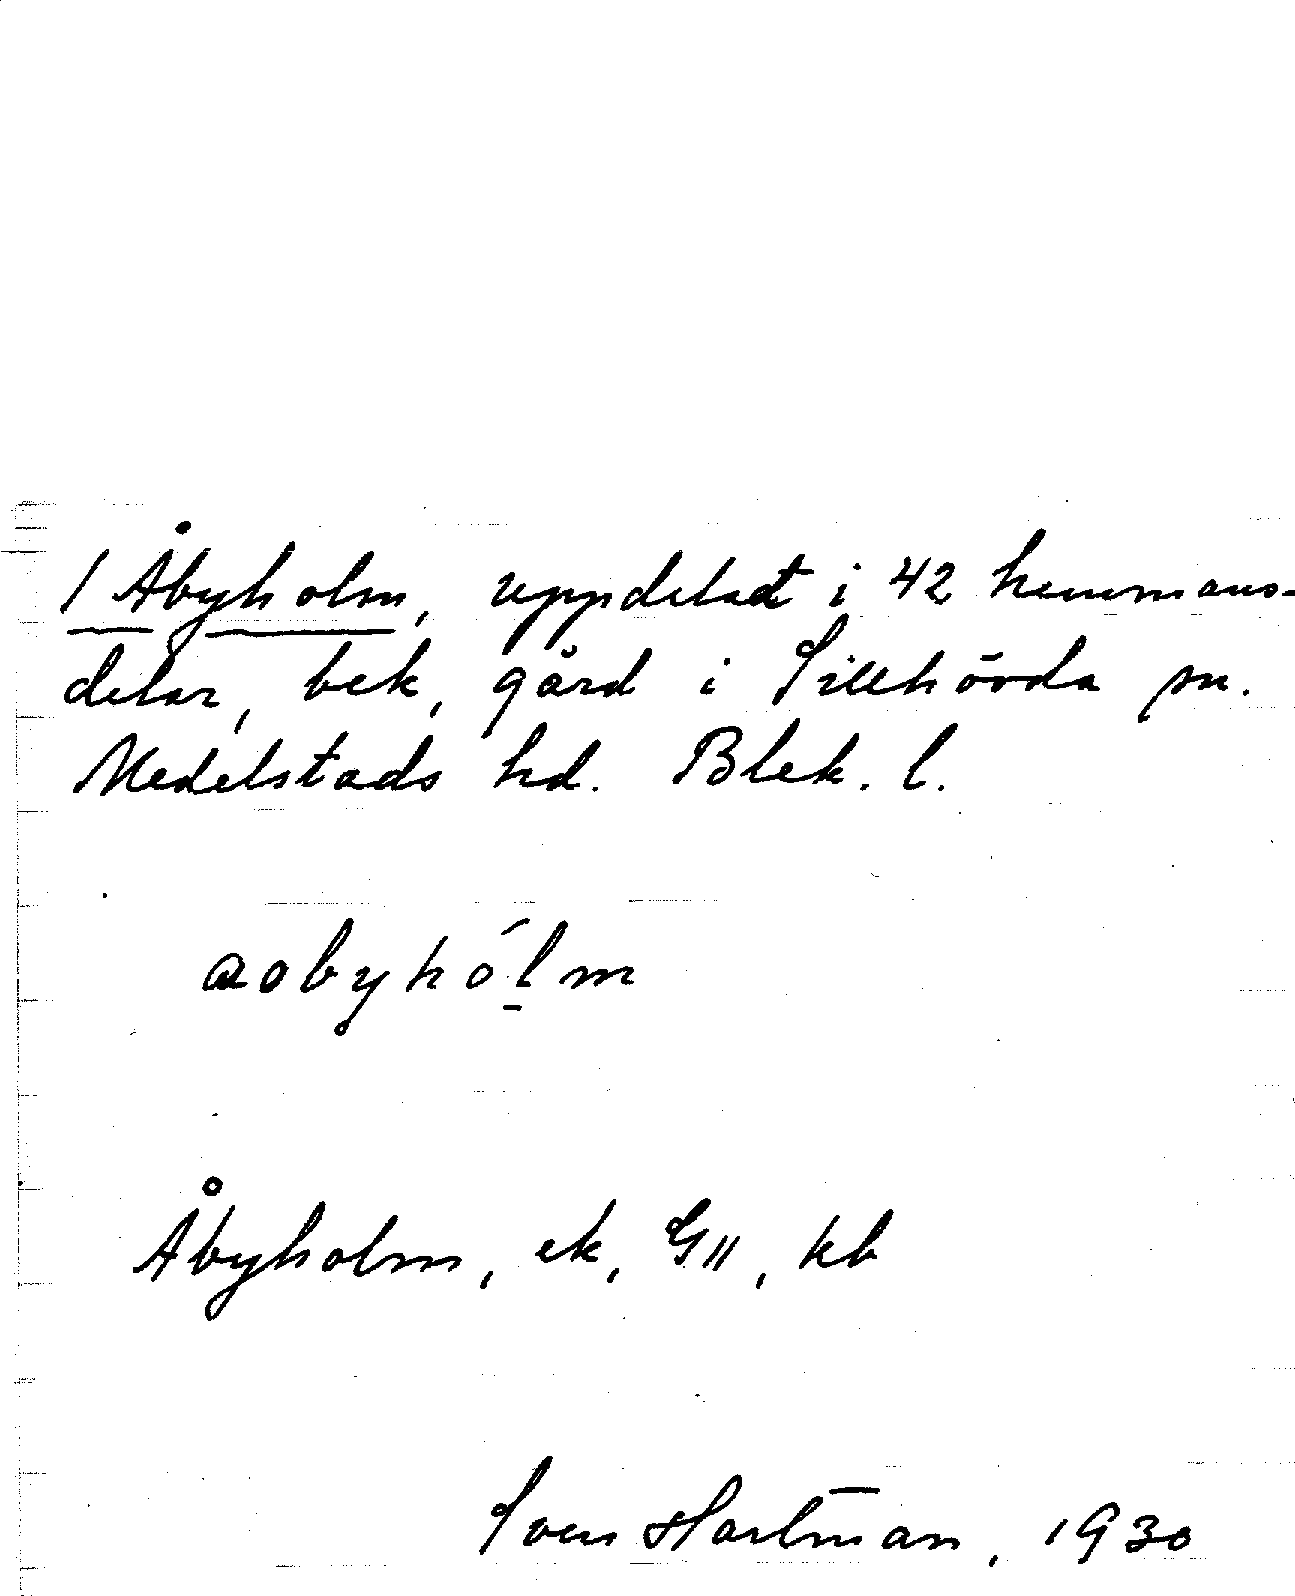 1 Åbyholm, uppdelad i 42 hemmans-
delar, bek, gård i Sillhövda sn.
Medelstads hd. Blek. l.
aobyhólm
Åbyholm, ek, G11, kb
Sven Hartman, 1930